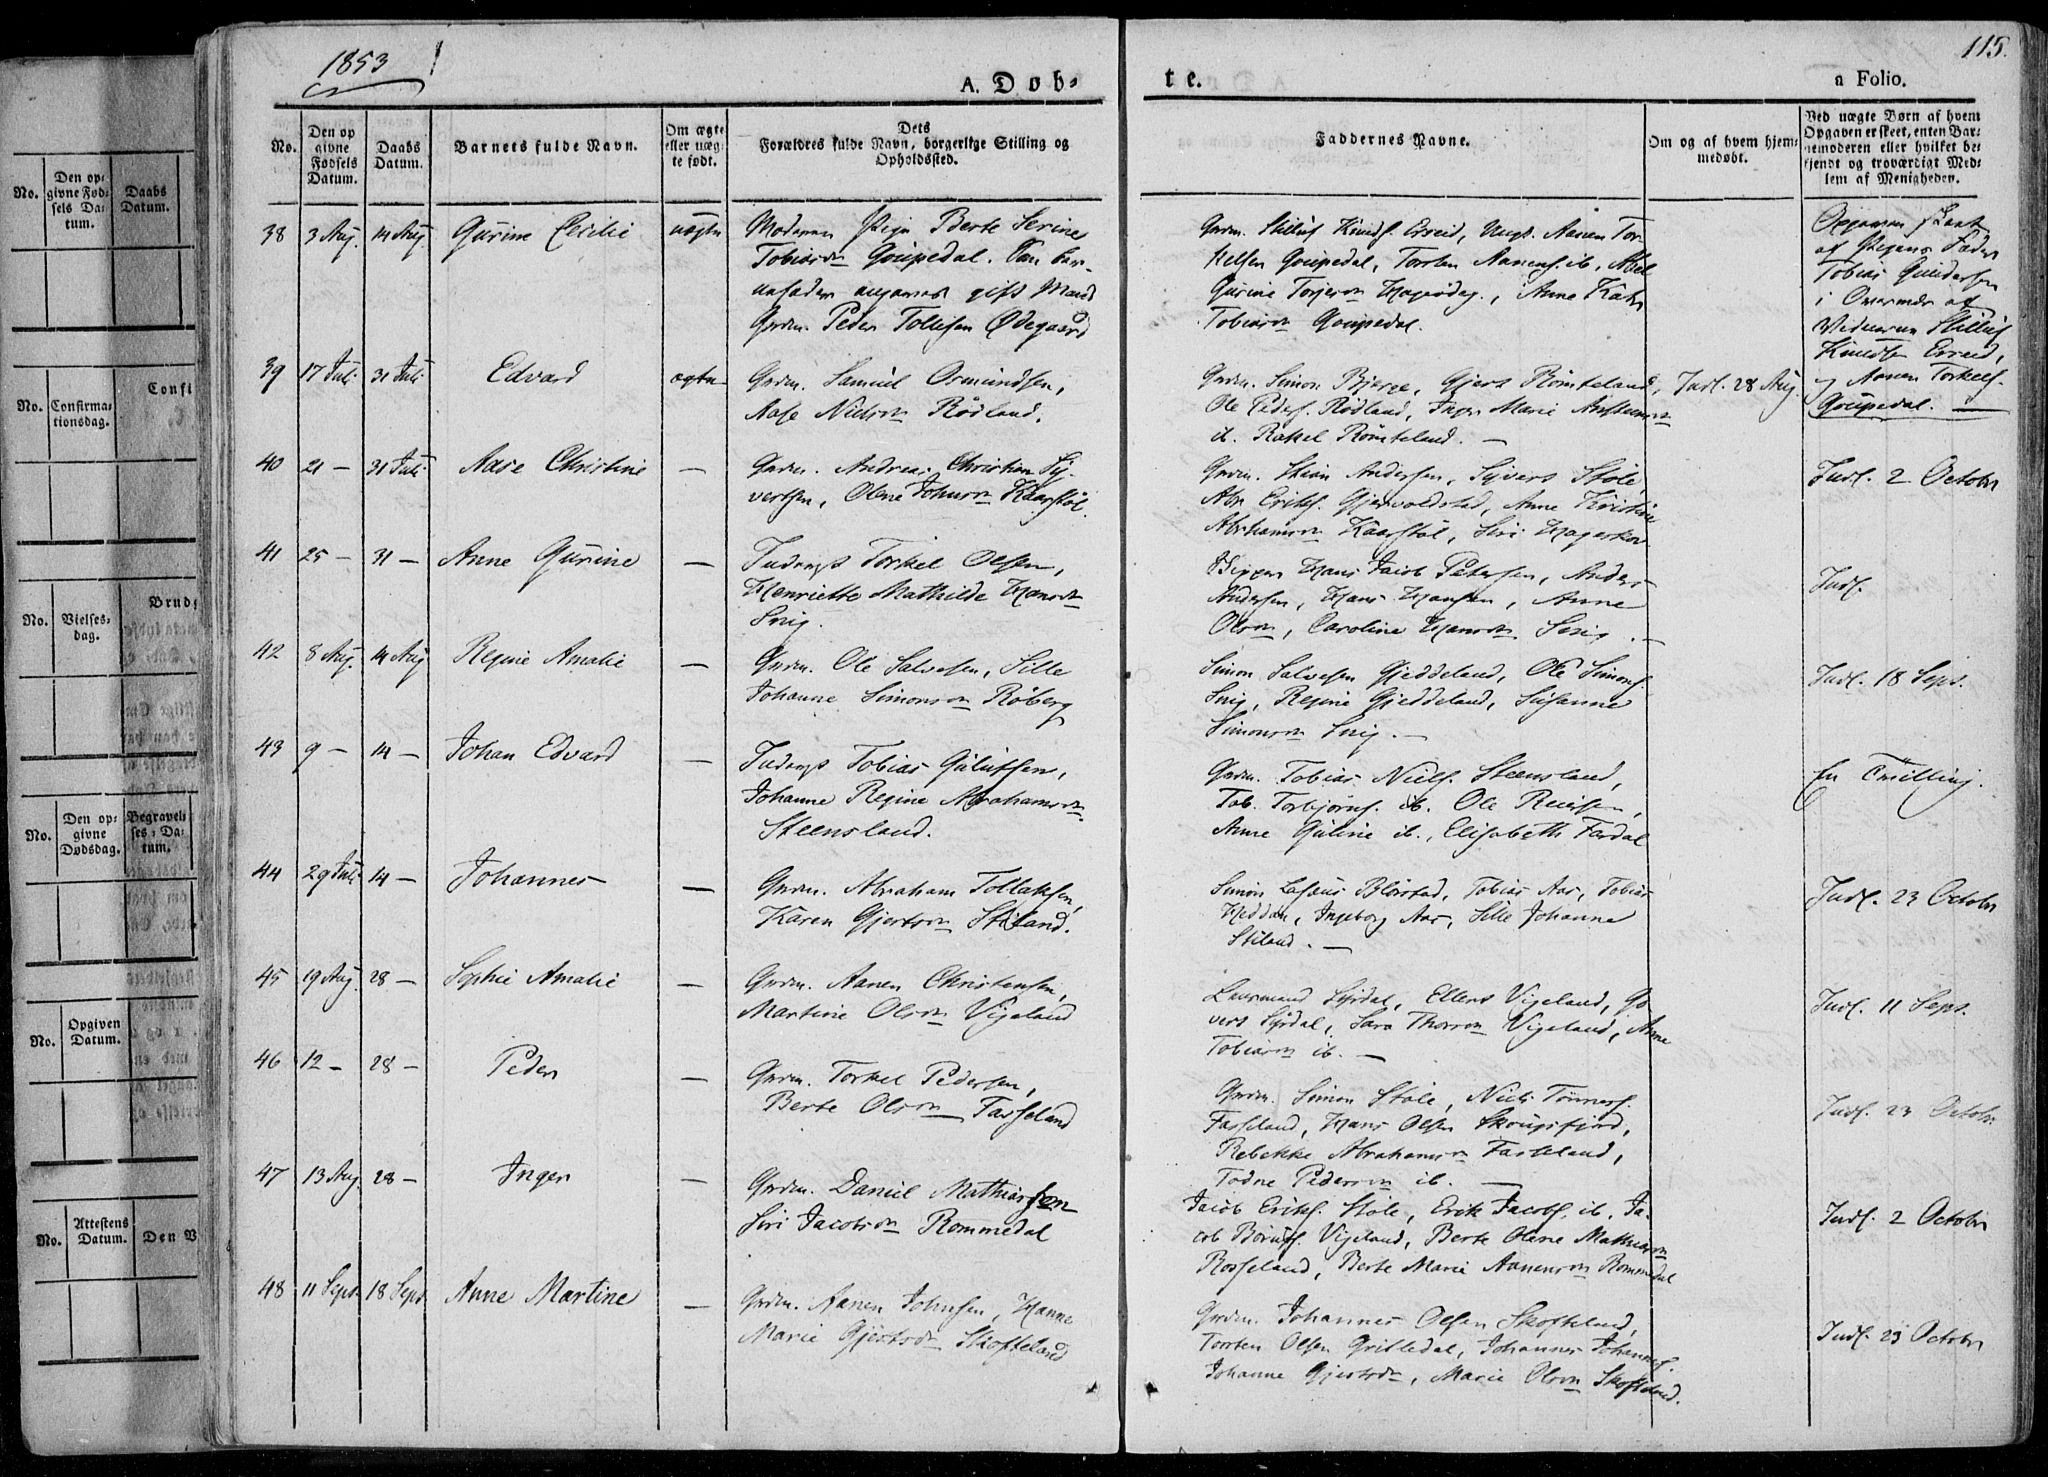 1853
115.
A. Döb-
te.
a Folio.
No.
Den op
givne
Fødsels
Datum.
Daabs
Datum.
Barnets fulde Navn.
Om ægte
eller uæg-
te født.
Dets
Forældres fulde Navn, borgerlige Stilling og
Opholdssted.
Faddernes Navne.
Om og af hvem hjem-
medøbt.
Ved uægte Børn af hvem
Opgaven er skeet, enten Bar-
nemoderen eller hvilket be-
kjendt og troværdigt Med-
lem af Menigheden.
38 3 Aug. 14 Aug Gurine Cecilie uægte Moderen Pige Berte Serine
Tobiasdn Goupedal. Som bar-
nefader angaves gift Mand
Grdm. Peder Tollifsen Ødegaard
Grdm. Stillúf Knuds. Erreid, Ungk. Aanen Tor-
kelsen Goupedal, Torsten Aanens. ib., Abel
Gurine Torjersdn, Anne Kath.
Tobiasdn Goupedal.
Opgaven skeet
af Pigens Fader
Tobias Gundersen
i Overvær af
Vidnerne Stillúf
Knudsen Erreid,
og Aanen Torkels.
Goupedal.
39 17 Juli 31 Juli Edvard ægte Grdm. Samuel Osmundsen,
Aase Nielsdn Rødland.
Grdm. Simon Bjerge, Gjers Römteland,
Ole Peders. Rødland, Inger Marie
ib. Rakel Römteland. —
Indl. 28 Aug.
40 21 — 31 Juli Aase Christine — Grdm. Andreas Christian Sy-
vertsen, Olene Johnsdn Kaarstöl.
Grdm. Andersen, Syvert Støle,
Abr. Eriks. Gjervoldstad, Anne Kristine
Abrahamsdn Kaarstöl, Siri
Indl. 2 Octobr
41 25 — 31 — Anne Gurine — Inderst Torkel Olsen,
Henriette Mathilde Hansdn
Snig.
Hans Jacob Petersen, Anders
Andersen, Hans Hansen, Anne
Olsdn, Caroline Hansdn Snig. —
Indl.
42 8 Aug. 14 Aug Regine Amalie — Grdm. Ole Salvesen, Sille
Johanne Simonsdn Røberg
Simon Salvesen Gjeddeland, Ole Simons.
Snig, Regine Gjeddeland, Susanne
Simonsdn Snig. —
Indl. 18 Sept.
43 9 — 14 — Johan Edvard — Inderst Tobias Gulutsen,
Johanne Regine Abrahamsdn
Steensland.
Grdm. Tobias Niels. Steensland,
Tob. Torbjørns. ib. Ole Reiersen,
Anne Guline ib., Elisabeth Fardal
En Tvilling.
44 29 Juli 14 — Johannes — Grdm. Abraham Tollaksen,
Karen Gjertsdn Stiland.
Simon Blørstad, Tobias Aas, Tobias
Heddan, Ingeborg Aas, Sille Johanne
Stiland. —
Indl. 23 Octobr
45 19 Aug. 28 — Sophie Amalie — Grdm. Aanen Christensen,
Martine Olsdn Vigeland
Syrdal, Ellers Vigeland, Go-
vert Syrdal, Sara Vigeland, Anne
Tobiasdn ib. —
Indl. 11 Sept.
46 12 — 28 — Peder — Grdm. Torkel Pedersen,
Berte Olsdn Fasseland
Grdm. Simon Støle, Niels Tønnes.
Fasseland, Hans Olsen Skougsfjord,
Rebekke Abrahamsdn Fasseland,
Todne Pedersdn ib. —
Indl. 23 Octobr.
47 13 Aug. 28 — Inger — Grdm. Daniel Mathiassen
Siri Jacobsdn Rommedal
Jacob Eriks. Støle, Erik Jacobs. ib. Ja-
cob Vigeland, Berte Olene Mathiasdn
Rosseland, Berte Marie Aanensdn Rommedal
Indl. 2 Octobr
48 11 Sept. 18 Sept. Anne Martine — Grdm. Aanen Johnsen, Hanne
Marie Gjertsdn Skofteland
Grdm. Johannes Olsen Skofteland,
Torsten Olsen Grisledal, Johannes Johannes.
Johanne Gjertsdn, Marie Olsdn Skofteland.
Indl. 23 Octobr
No.
Den op-
givne Fød-
sels Da-
tum.
Daabs
Datum.
No.
Confirma-
tionsdag.
Confi
No.
Vielses-
dag.
Brud
No.
Den op-
givne
Dødsdag.
Begravel-
ses-Da-
tum.
No.
Opgiven
Datum.
No.
Attestens
Datum.
Den V